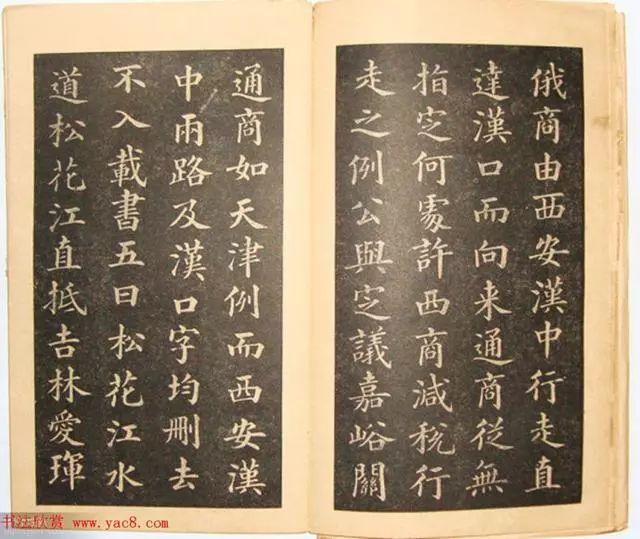 俄商由西安漢中行走直
達漢口而向来通商從無
指定何處許西商減税行
走之例公與定議嘉峪關
通商如天津例而西安漢
中兩路及漢口字均刪去
不入載書五曰松花江水
道松花江直抵吉林愛琿
书法欣赏 www.yac8.com